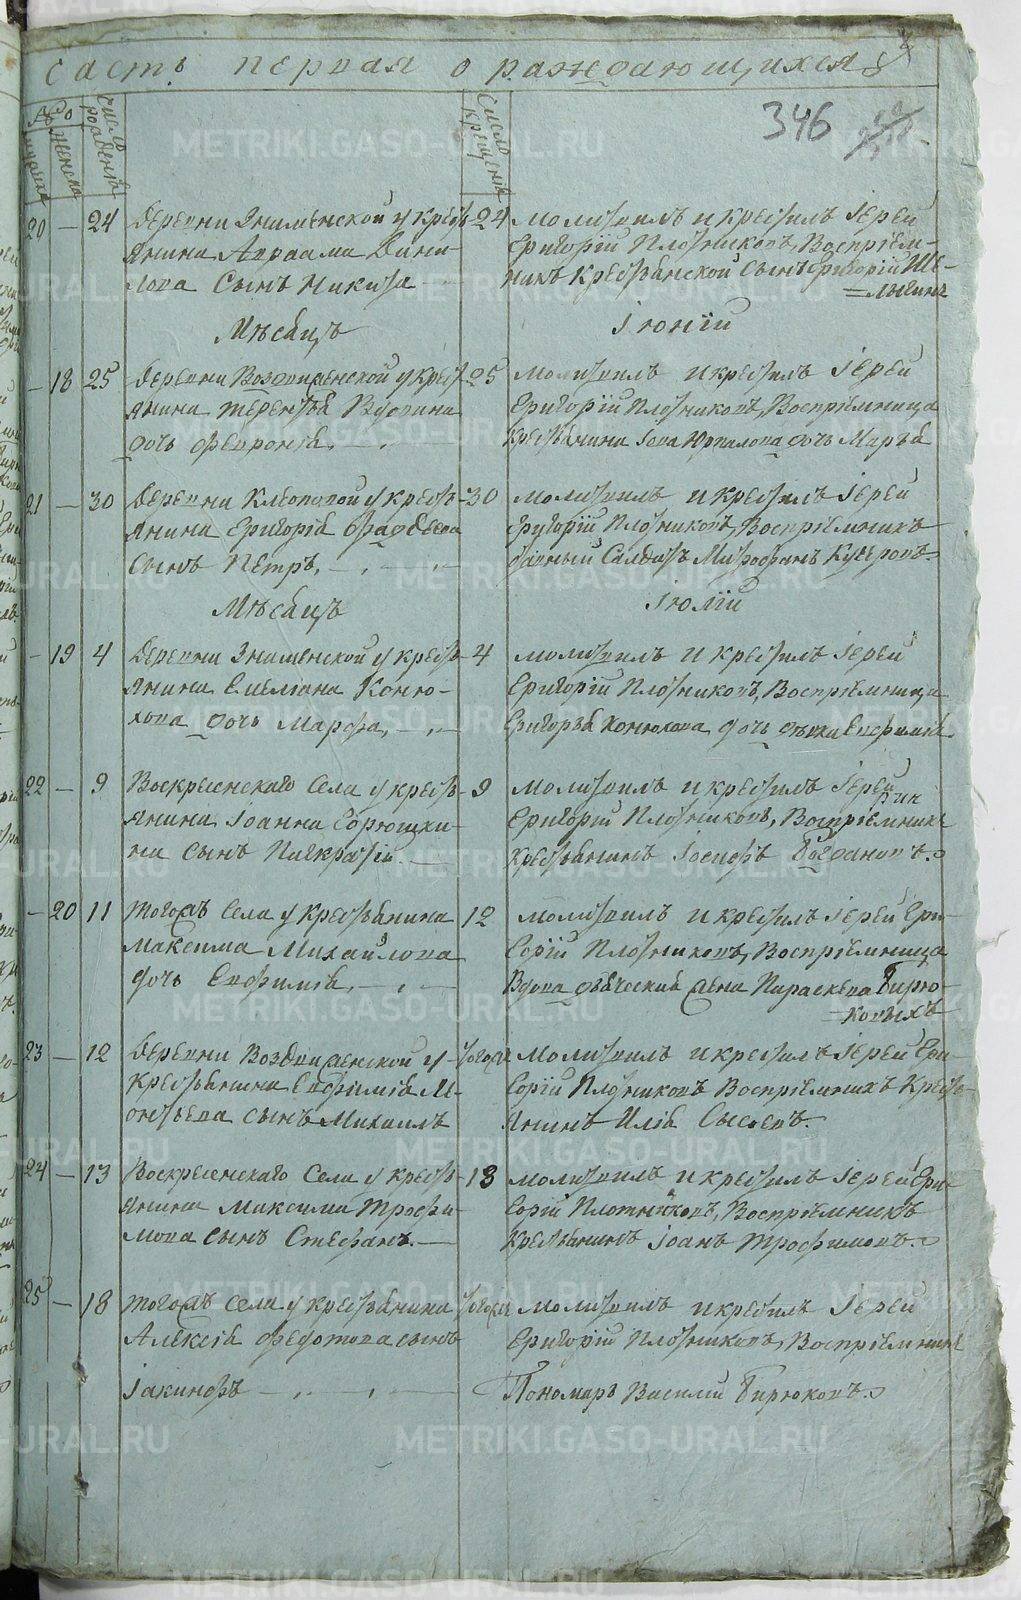 Часть первая о раждающихся
346
№
мужеска
женска
Число рождения
Число крещения
20 — 24 Деревни Знаменской у кресть-
янина Авраама Дани-
лова Сынъ Никита —
24 молитвилъ и крестилъ Iерей
Григорïй Плотниковъ, Воспрïем-
никъ Крестьянской Сынъ Григорïй Ше-
=лыгинъ
Мѣсяцъ Iюнïй
— 18 25 Деревни Воздвиженской у крест-
янина терентья Вдовина
дочь Феvронïя. — . —
25 молитвилъ и крестилъ Iерей
Григорïй Плотниковъ, Воспрïемница
Крестьянина Iова Юрпалова дочь Марья
21 — 30 Деревни Клеоповой у кресть-
янина Григорïя Фаддеева
Сынъ Петръ, — . — . —
30 молитвилъ и крестилъ Iерей
Григорïй Плотниковъ, Воспрïемникъ
Салдатъ Митрофанъ Кучеровъ.
Мѣсяцъ Iюлïй
— 19 4 Деревни Знаменской у кресть-
янина Емелïана Коню-
хова дочь Марфа, — . —
4 молитвилъ и крестилъ Iерей
Григорïй Плотниковъ, Воспрïемница
Григорья Конюхова дочь девка Евфимïя.
22 — 9 Воскресенскаго Села у кресть-
янина Iоанна Горюшки-
на Сынъ Панкратïй. —
9 молитвилъ и крестилъ Iерей
Григорïй Плотниковъ, Воспрïемникъ
Крестьянинъ Iосифъ Богдановъ.
— 20 11 тогожъ Села у Крестьянина
Максима Михайлова
дочь Евфимïя, — . —
12 молитвилъ и крестилъ Iерей Гри-
горïй Плотниковъ, Воспрïемница
Вдова дьяческая жена Параскева Бирю-
=ковыхъ
23 — 12 Деревни Воздвиженской у
Крестьянина Евфимïя Ле-
онтьева сынъ Михаилъ
тогожъ молитвилъ и крестилъ Iерей Гри-
горïй Плотниковъ Воспрïемникъ Кресть-
янинъ Илïя Сысоевъ.
24 — 13 Воскресенскаго Села у кресть-
янина Максима Трофи-
мова Сынъ Стефанъ. —
13 молитвилъ и крестилъ Iерей Гри-
горïй Плотниковъ, Воспрïемникъ
Крестьянинъ Iоанъ Трофимовъ.
25 — 18 тогожъ Села у крестьянина
Алексïя Федотова сынъ
Iакинфъ — . — . —
тогожъ молитвилъ и крестилъ Iерей
Григорïй Плотниковъ, Воспрïемникъ
Пономарь Василïй Бирюковъ.
METRIKI.GASO-URAL.RU